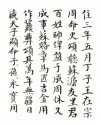 隹三年五月丁子王在宗
周命史頌蘇友里君
百姓帥于成周休又
成事蘇賓章馬四匹吉金用
作彝頌其萬年無疆日
天子顯命子孫永寶用